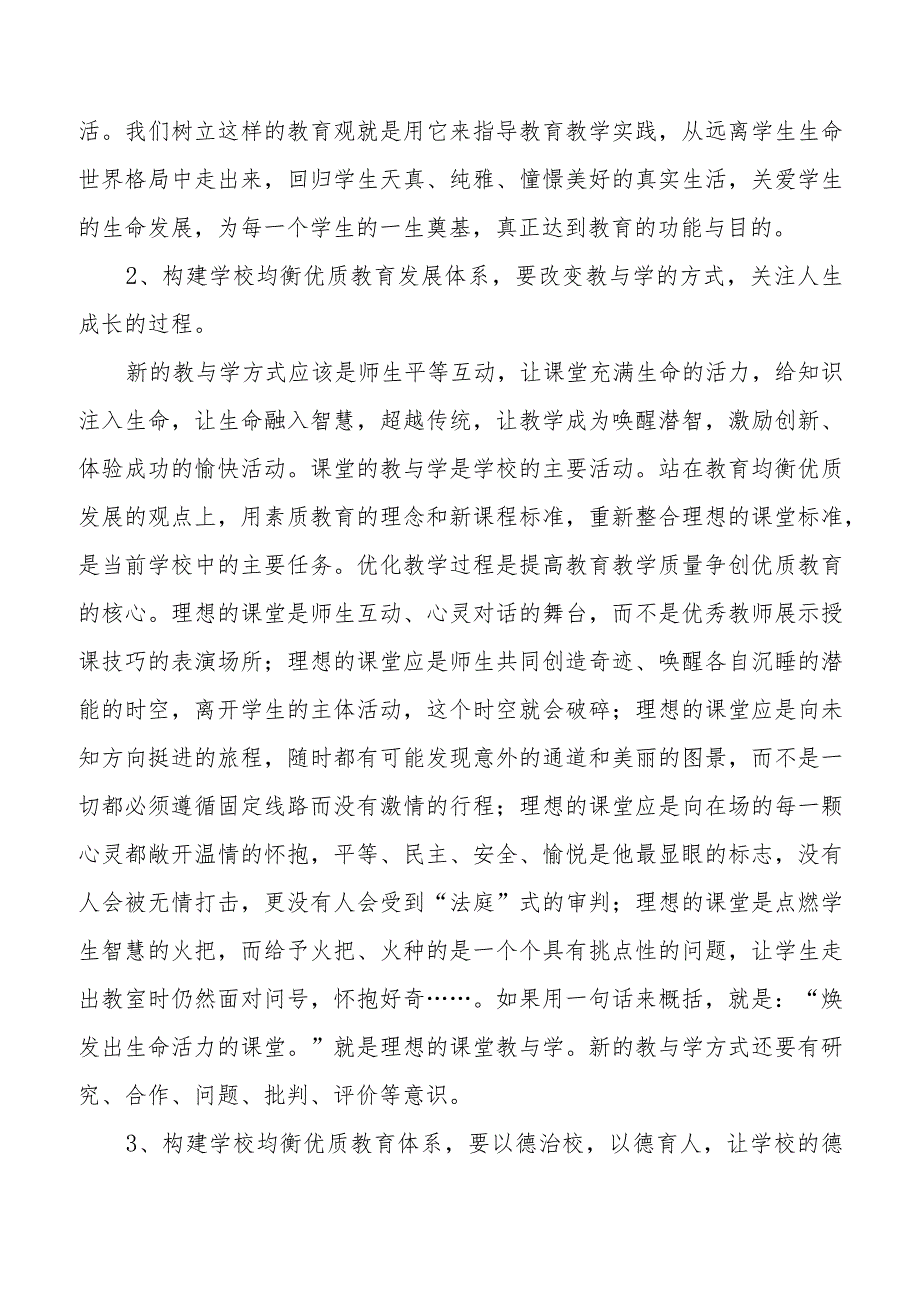 活。我们树立这样的教育观就是用它来指导教育教学实践，从远离学生生命
世界格局中走出来，回归学生天真、纯雅、憧憬美好的真实生活，关爱学生
的生命发展，为每一个学生的一生奠基，真正达到教育的功能与目的。
2、构建学校均衡优质教育发展体系，要改变教与学的方式，关注人生
成长的过程。
新的教与学方式应该是师生平等互动，让课堂充满生命的活力，给知识
注入生命，让生命融入智慧，超越传统，让教学成为唤醒潜智，激励创新、
体验成功的愉快活动。课堂的教与学是学校的主要活动。站在教育均衡优质
发展的观点上，用素质教育的理念和新课程标准，重新整合理想的课堂标准，
是当前学校中的主要任务。优化教学过程是提高教育教学质量争创优质教育
的核心。理想的课堂是师生互动、心灵对话的舞台，而不是优秀教师展示授
课技巧的表演场所；理想的课堂应是师生共同创造奇迹、唤醒各自沉睡的潜
能的时空，离开学生的主体活动，这个时空就会破碎；理想的课堂应是向未
知方向挺进的旅程，随时都有可能发现意外的通道和美丽的图景，而不是一
切都必须遵循固定线路而没有激情的行程；理想的课堂应是向在场的每一颗
心灵都敞开温情的怀抱，平等、民主、安全、愉悦是他最显眼的标志，没有
人会被无情打击，更没有人会受到“法庭”式的审判；理想的课堂是点燃学
生智慧的火把，而给予火把、火种的是一个个具有挑点性的问题，让学生走
出教室时仍然面对问号，怀抱好奇……。如果用一句话来概括，就是：“焕
发出生命活力的课堂。”就是理想的课堂教与学。新的教与学方式还要有研
究、合作、问题、批判、评价等意识。
3、构建学校均衡优质教育体系，要以德治校，以德育人，让学校的德